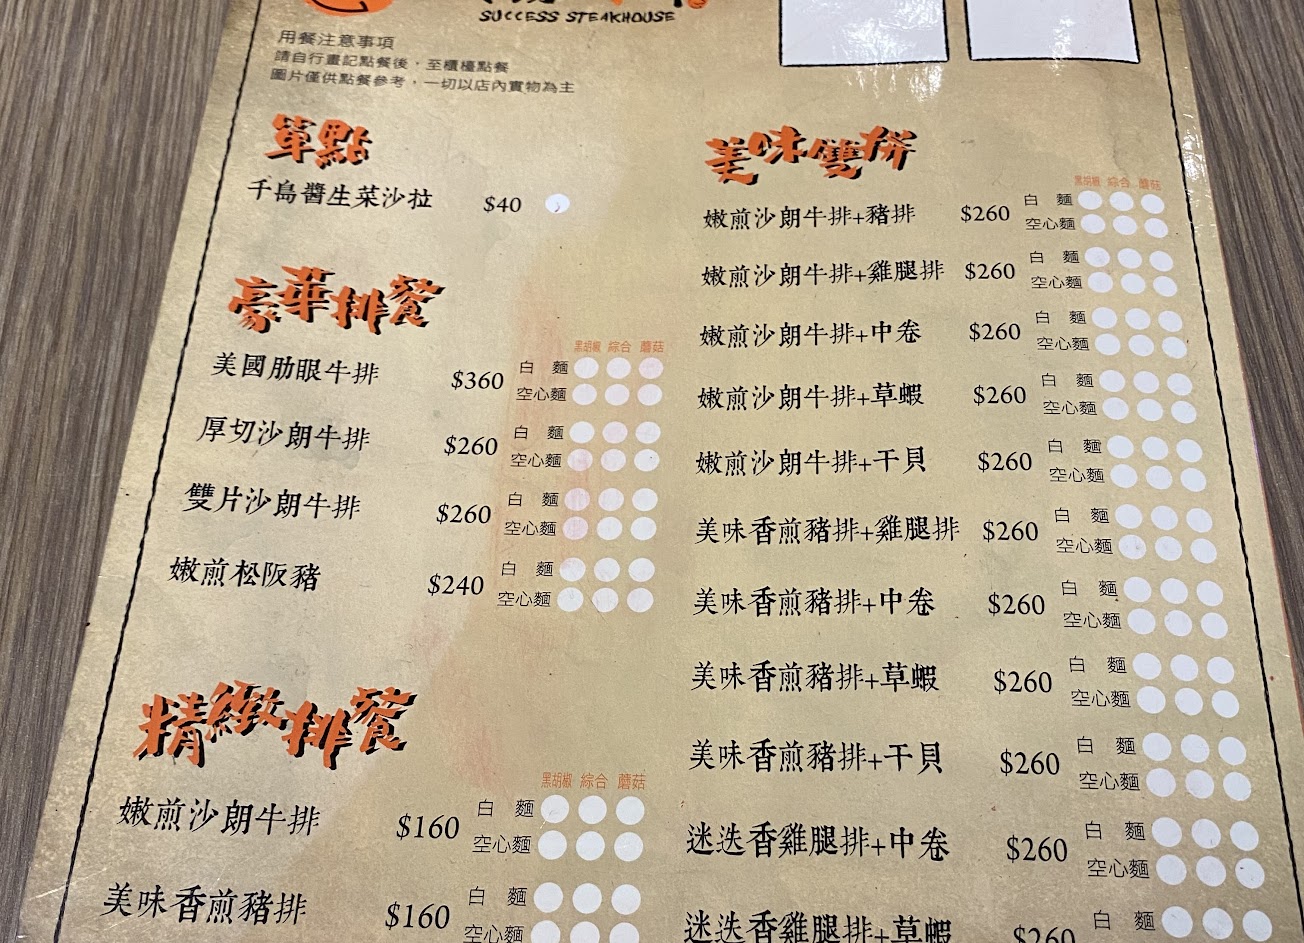 SUCCESS STEAKHOUSE
用餐注意事項
請自行畫記點餐後，至櫃檯點餐
圖片僅供點餐參考，一切以店內實物為主
單點
千島醬生菜沙拉 $40
豪華排餐
黑胡椒 綜合 蘑菇
美國肋眼牛排 $360 白麵
空心麵
厚切沙朗牛排 $260 白麵
空心麵
雙片沙朗牛排 $260 白麵
空心麵
嫩煎松阪豬 $240 白麵
空心麵
精緻排餐
黑胡椒 綜合 蘑菇
嫩煎沙朗牛排 $160 白麵
空心麵
美味香煎豬排 $160 白麵
空心麵
美味雙拼
黑胡椒 綜合 蘑菇
嫩煎沙朗牛排+豬排 $260 白麵
空心麵
嫩煎沙朗牛排+雞腿排 $260 白麵
空心麵
嫩煎沙朗牛排+中卷 $260 白麵
空心麵
嫩煎沙朗牛排+草蝦 $260 白麵
空心麵
嫩煎沙朗牛排+干貝 $260 白麵
空心麵
美味香煎豬排+雞腿排 $260 白麵
空心麵
美味香煎豬排+中卷 $260 白麵
空心麵
美味香煎豬排+草蝦 $260 白麵
空心麵
美味香煎豬排+干貝 $260 白麵
空心麵
迷迭香雞腿排+中卷 $260 白麵
空心麵
迷迭香雞腿排+草蝦 $260 白麵